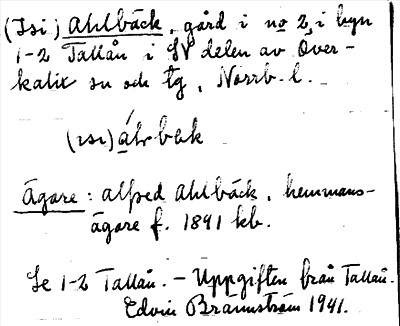 (Isi) Ahlbäck, gård i no 2, i byn
1-2 Tallån i SV delen av Över-
kalix sn och tg, Norrb. l.
(ɪsɪ) álrbak
Ägare: Alfred Ahlbäck, hemmans-
ägare f. 1891 kb.
Se 1-2 Tallån. - Uppgiften från Tallån.
Edvin Brännström 1941.